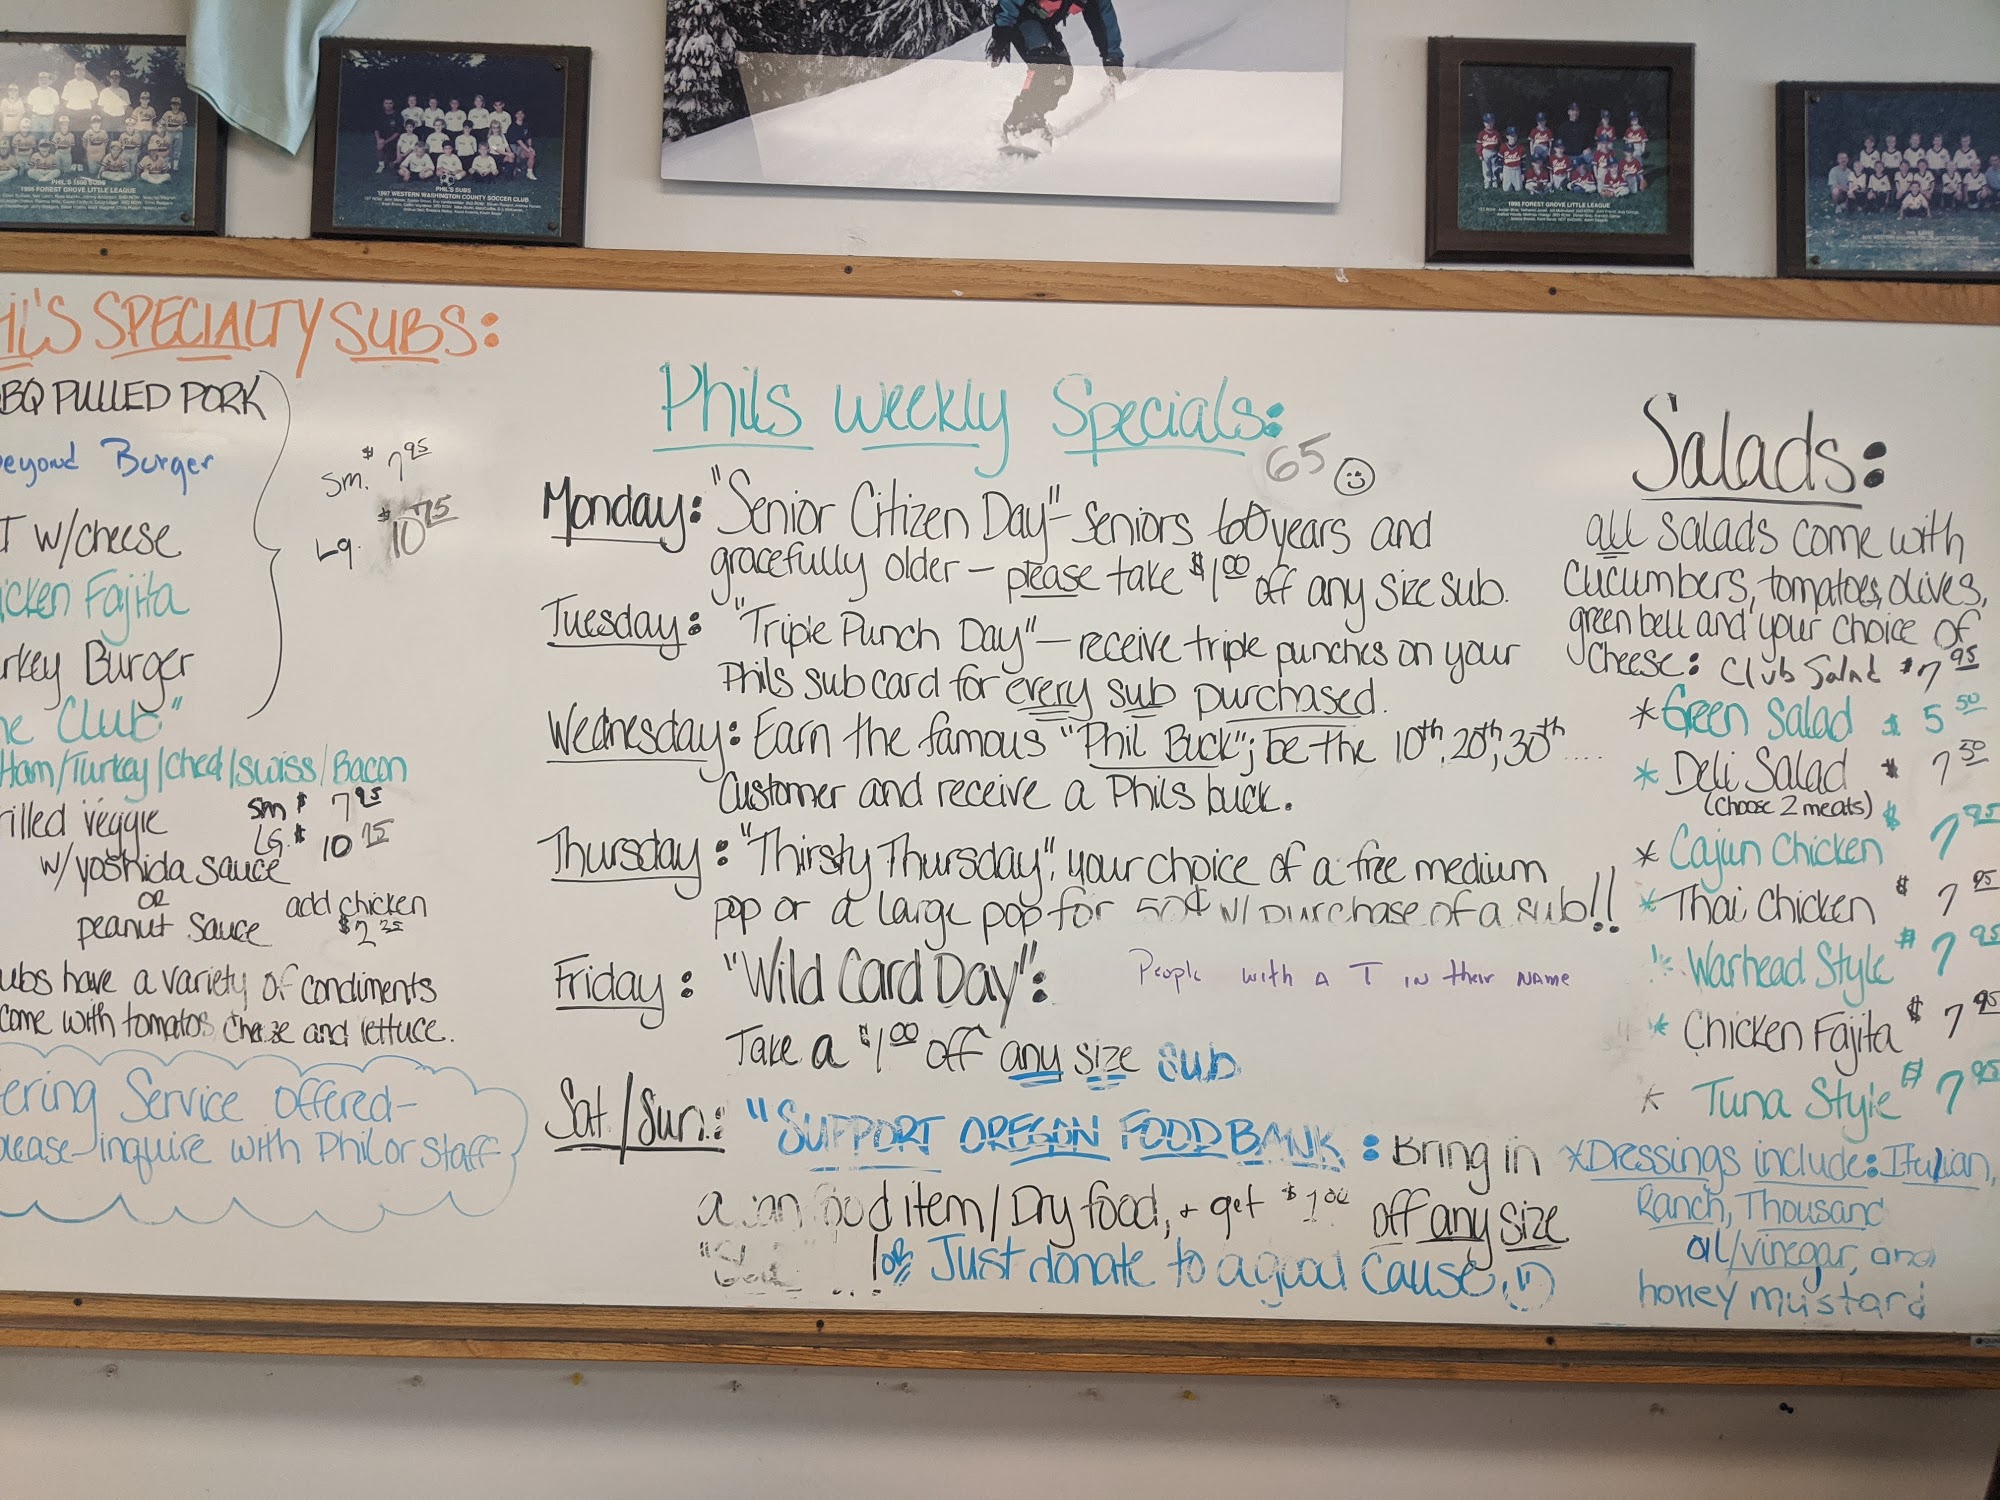 PHIL'S 1996 SUBS
1996 FOREST GROVE LITTLE LEAGUE
PHIL'S SUBS
1997 WESTERN WASHINGTON COUNTY SOCCER CLUB
1998 FOREST GROVE LITTLE LEAGUE
IL'S SPECIALTY SUBS:
BQ PULLED PORK
eyond Burger
T W/cheese
icken Fajita
rkey Burger
he Club"
Ham/Turkey/Ched/Swiss/Bacon
sm. $7.95
Lg. $10.75
rilled veggie sm $7.95
LG. $10.75
w/yoshida sauce
OR
peanut sauce
add chicken
$2.25
ubs have a variety of condiments
come with tomatos, cheese and lettuce.
tering Service offered-
please inquire with Phil or staff
Phils Weekly Specials:
65
Monday: "Senior Citizen Day" - Seniors 60 years and
gracefully older - please take $1.00 off any size sub.
Tuesday: "Triple Punch Day" - receive triple punches on your
Phils sub card for every sub purchased.
Wednesday: Earn the famous "Phil Buck"; be the 10th, 20th, 30th ....
Customer and receive a Phils buck.
Thursday: "Thirsty Thursday", your choice of a free medium
pop or a large pop for 50¢ w/ purchase of a sub!!
Friday: "Wild Card Day": People with a T in their name
Take a $1.00 off any size sub
Sat./Sun.: "SUPPORT OREGON FOOD BANK: Bring in
a can food item/Dry food, + get $1.00 off any size
! or Just donate to a good cause.
Salads:
all salads come with
cucumbers, tomatoes, olives,
green bell and your choice of
cheese: Club Salad $7.95
*Green Salad $5.50
* Deli Salad $7.50
(choose 2 meats)
* Cajun Chicken $7.95
* Thai Chicken $7.95
* Warhead Style $7.95
* Chicken Fajita $7.95
* Tuna Style $7.95
*Dressings include: Italian,
Ranch, Thousand
oil/vinegar, and
honey mustard